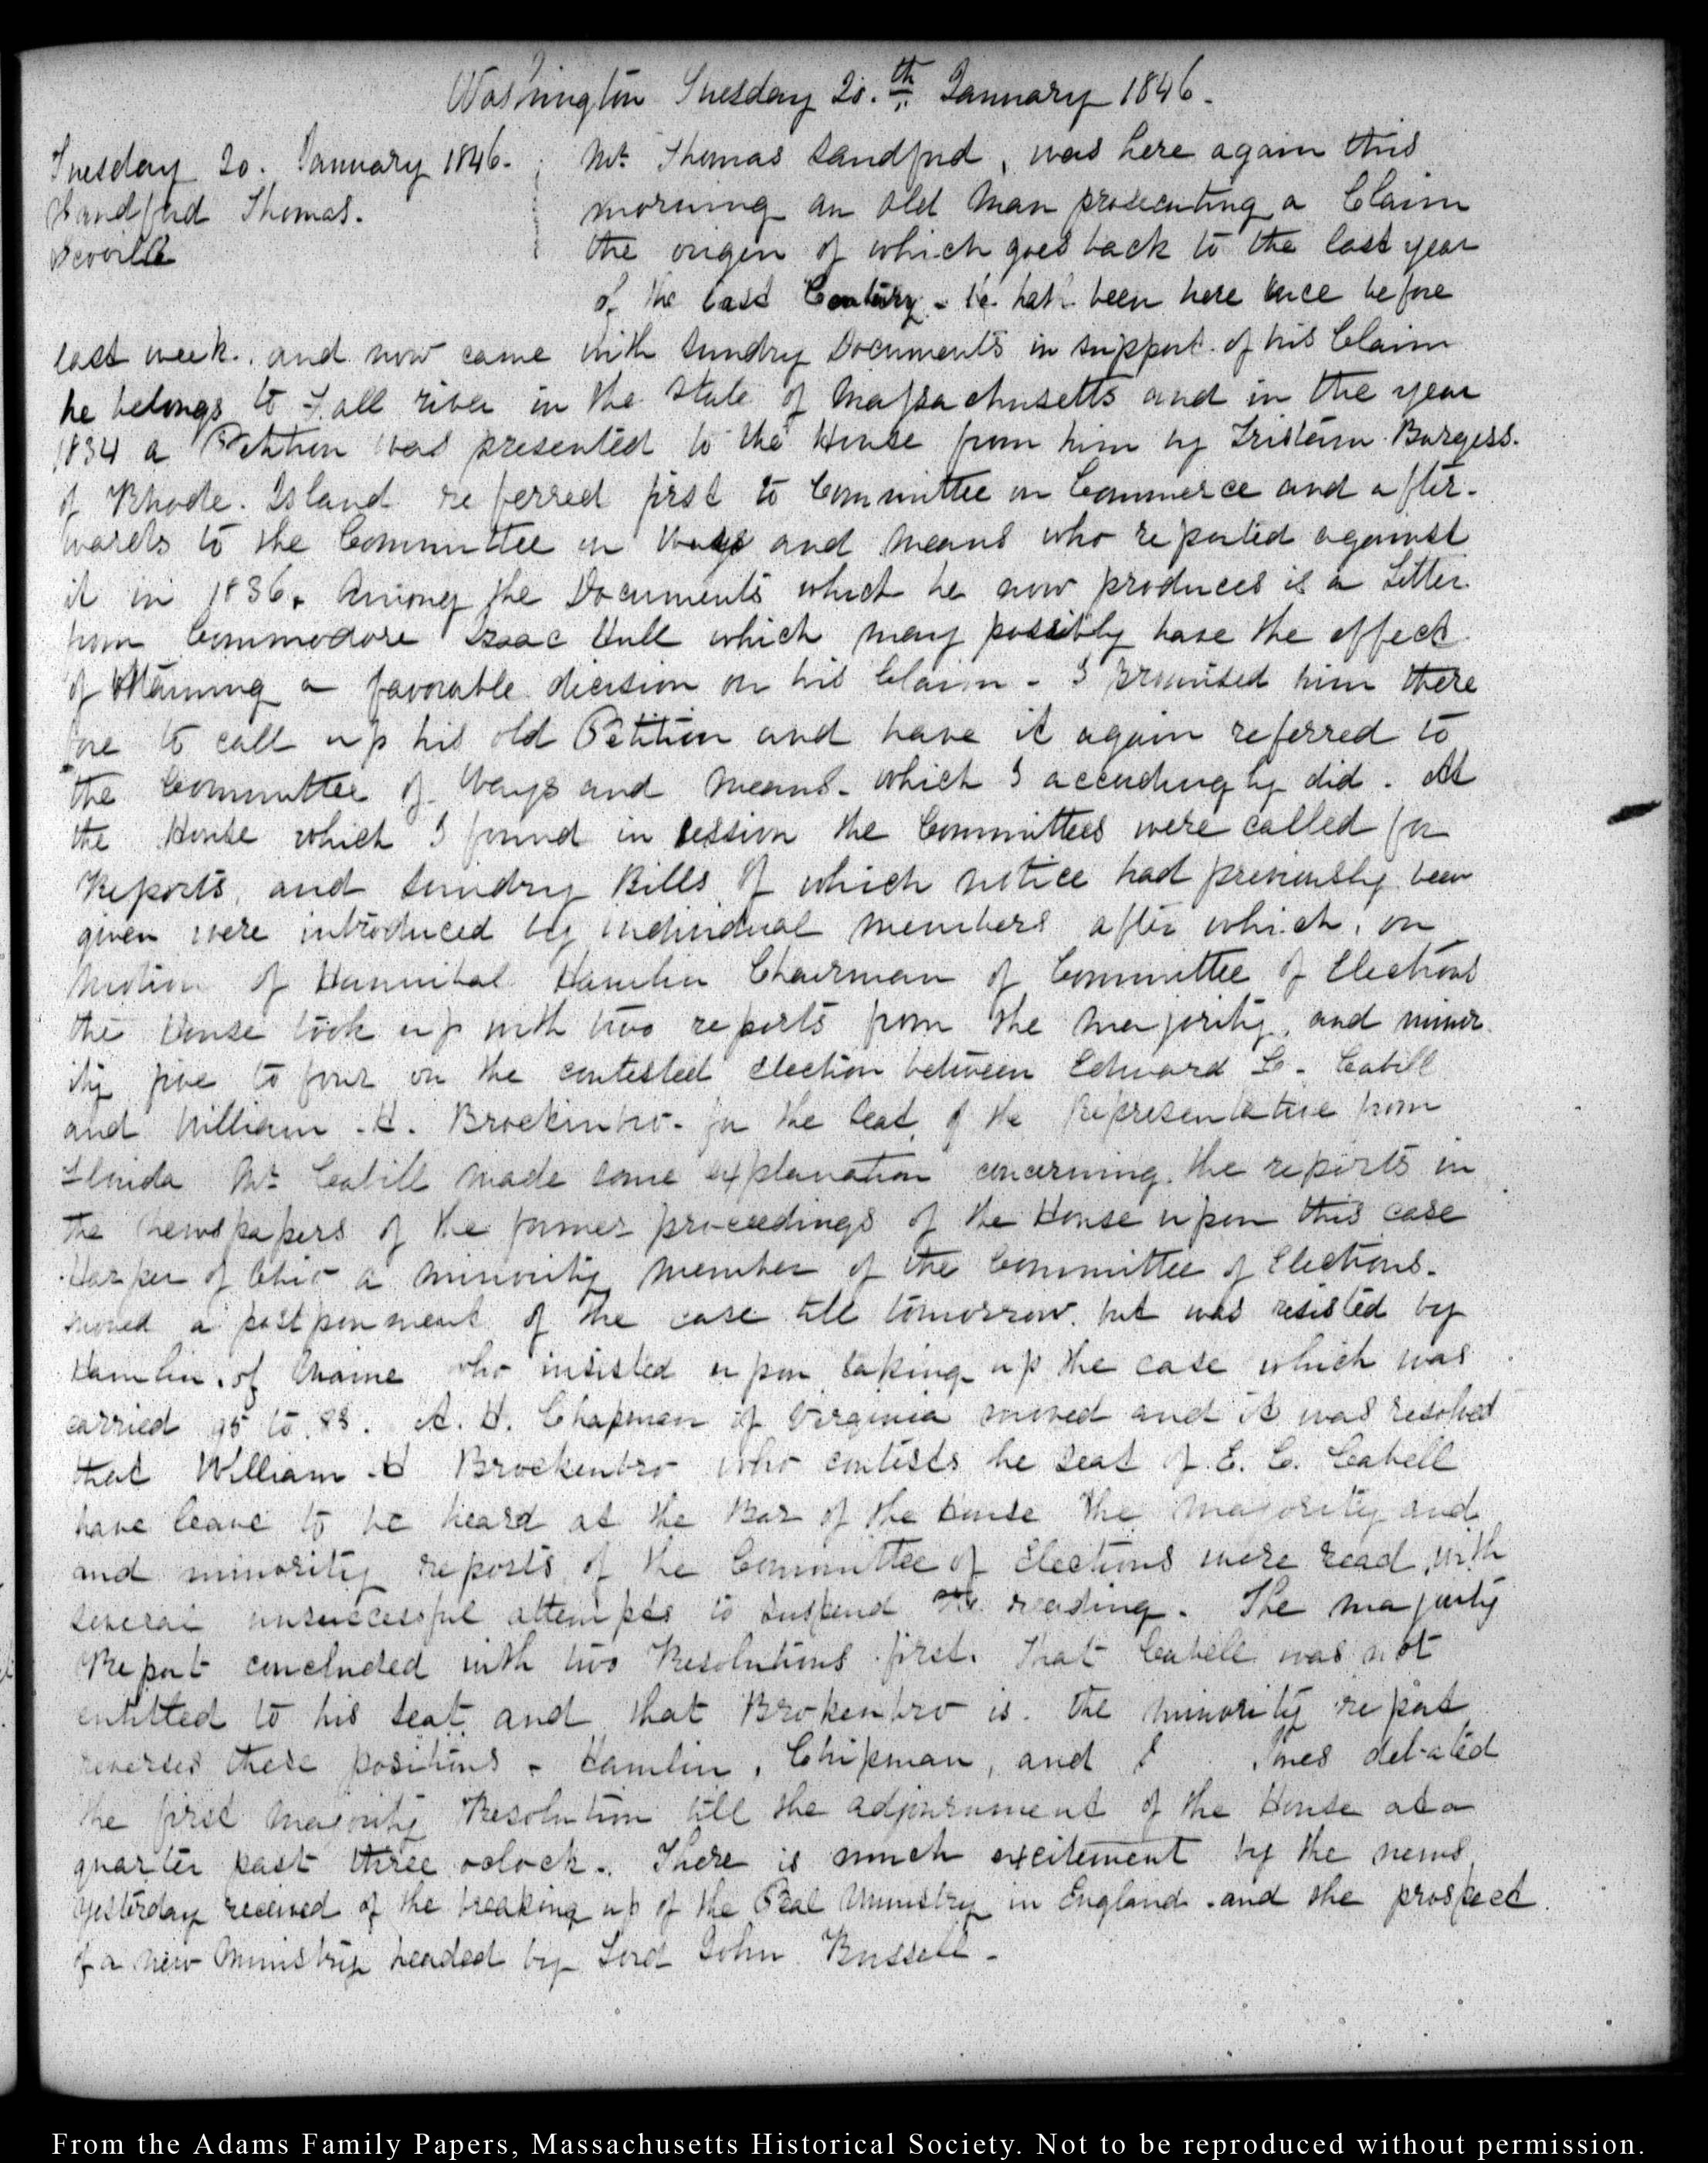 Washington Tuesday 20.th January 1846.
Tuesday 20. January 1846.
Sandford Thomas.
Seville
Mr. Thomas Sandford, was here again this
morning an old man prosecuting a Claim
the origin of which goes back to the last year
of the last Century - he hath been here once before
last week. and now came with sundry Documents in support of his Claim
he belongs to Fall river in the State of Massachusetts and in the year
1834 a Petition was presented to the House from him by Tristam Burgess.
of Rhode. Island referred first to Committee on Commerce and after-
wards to the Committee on Ways and Means who reported against
it in 1836. Among the Documents which he now produces is a Letter
from Commodore Isaac Hull which may possibly have the effect
of obtaining a favorable decision on his Claim - I promised him there
fore to call up his old Petition and have it again referred to
the Committee of Ways and Means - which I accordingly did. At
the House which I found in session the Committees were called for
Reports, and sundry Bills of which notice had previously been
given were introduced by individual members after which, on
motion of Hannibal Hamlin Chairman of Committee of Elections
the House took up with two reports from the majority, and minor
ity five to four on the contested election between Edward C. Cabill
and William H. Brockinbro - for the Seat of the Representative from
Florida Mr. Cabill made some explanation concerning the reports in
the Newspapers of the former proceedings of the House upon this case
Harper of Ohio a minority member of the Committee of Elections.
moved a postponment of the case till tomorrow. but was resisted by
Hamlin, of Maine who insisted upon taking up the case which was
carried 95 to 83. A. H. Chapman of Virginia moved and it was resolved
that William H Brockenbro who contests he Seat of E. C. Cabell
have leave to be heard at the Bar of the House The majority and
and minority reports of the Committee of Elections were read, with
several unsuccessful attempts to suspend the reading. The majority
Report concluded with two Resolutions first. That Cabell was not
entitled to his Seat and that Brokenbro is. the minority report
reverses these positions - Hamlin, Chipman, and Jones debated
the first majority Resolution till the adjournment of the House at a
quarter past three oclock. There is much excitement by the news
yesterday received of the breaking up of the Peal Ministry in England. and the prospect
of a new Ministry headed by Lord John Russell -
From the Adams Family Papers, Massachusetts Historical Society. Not to be reproduced without permission.